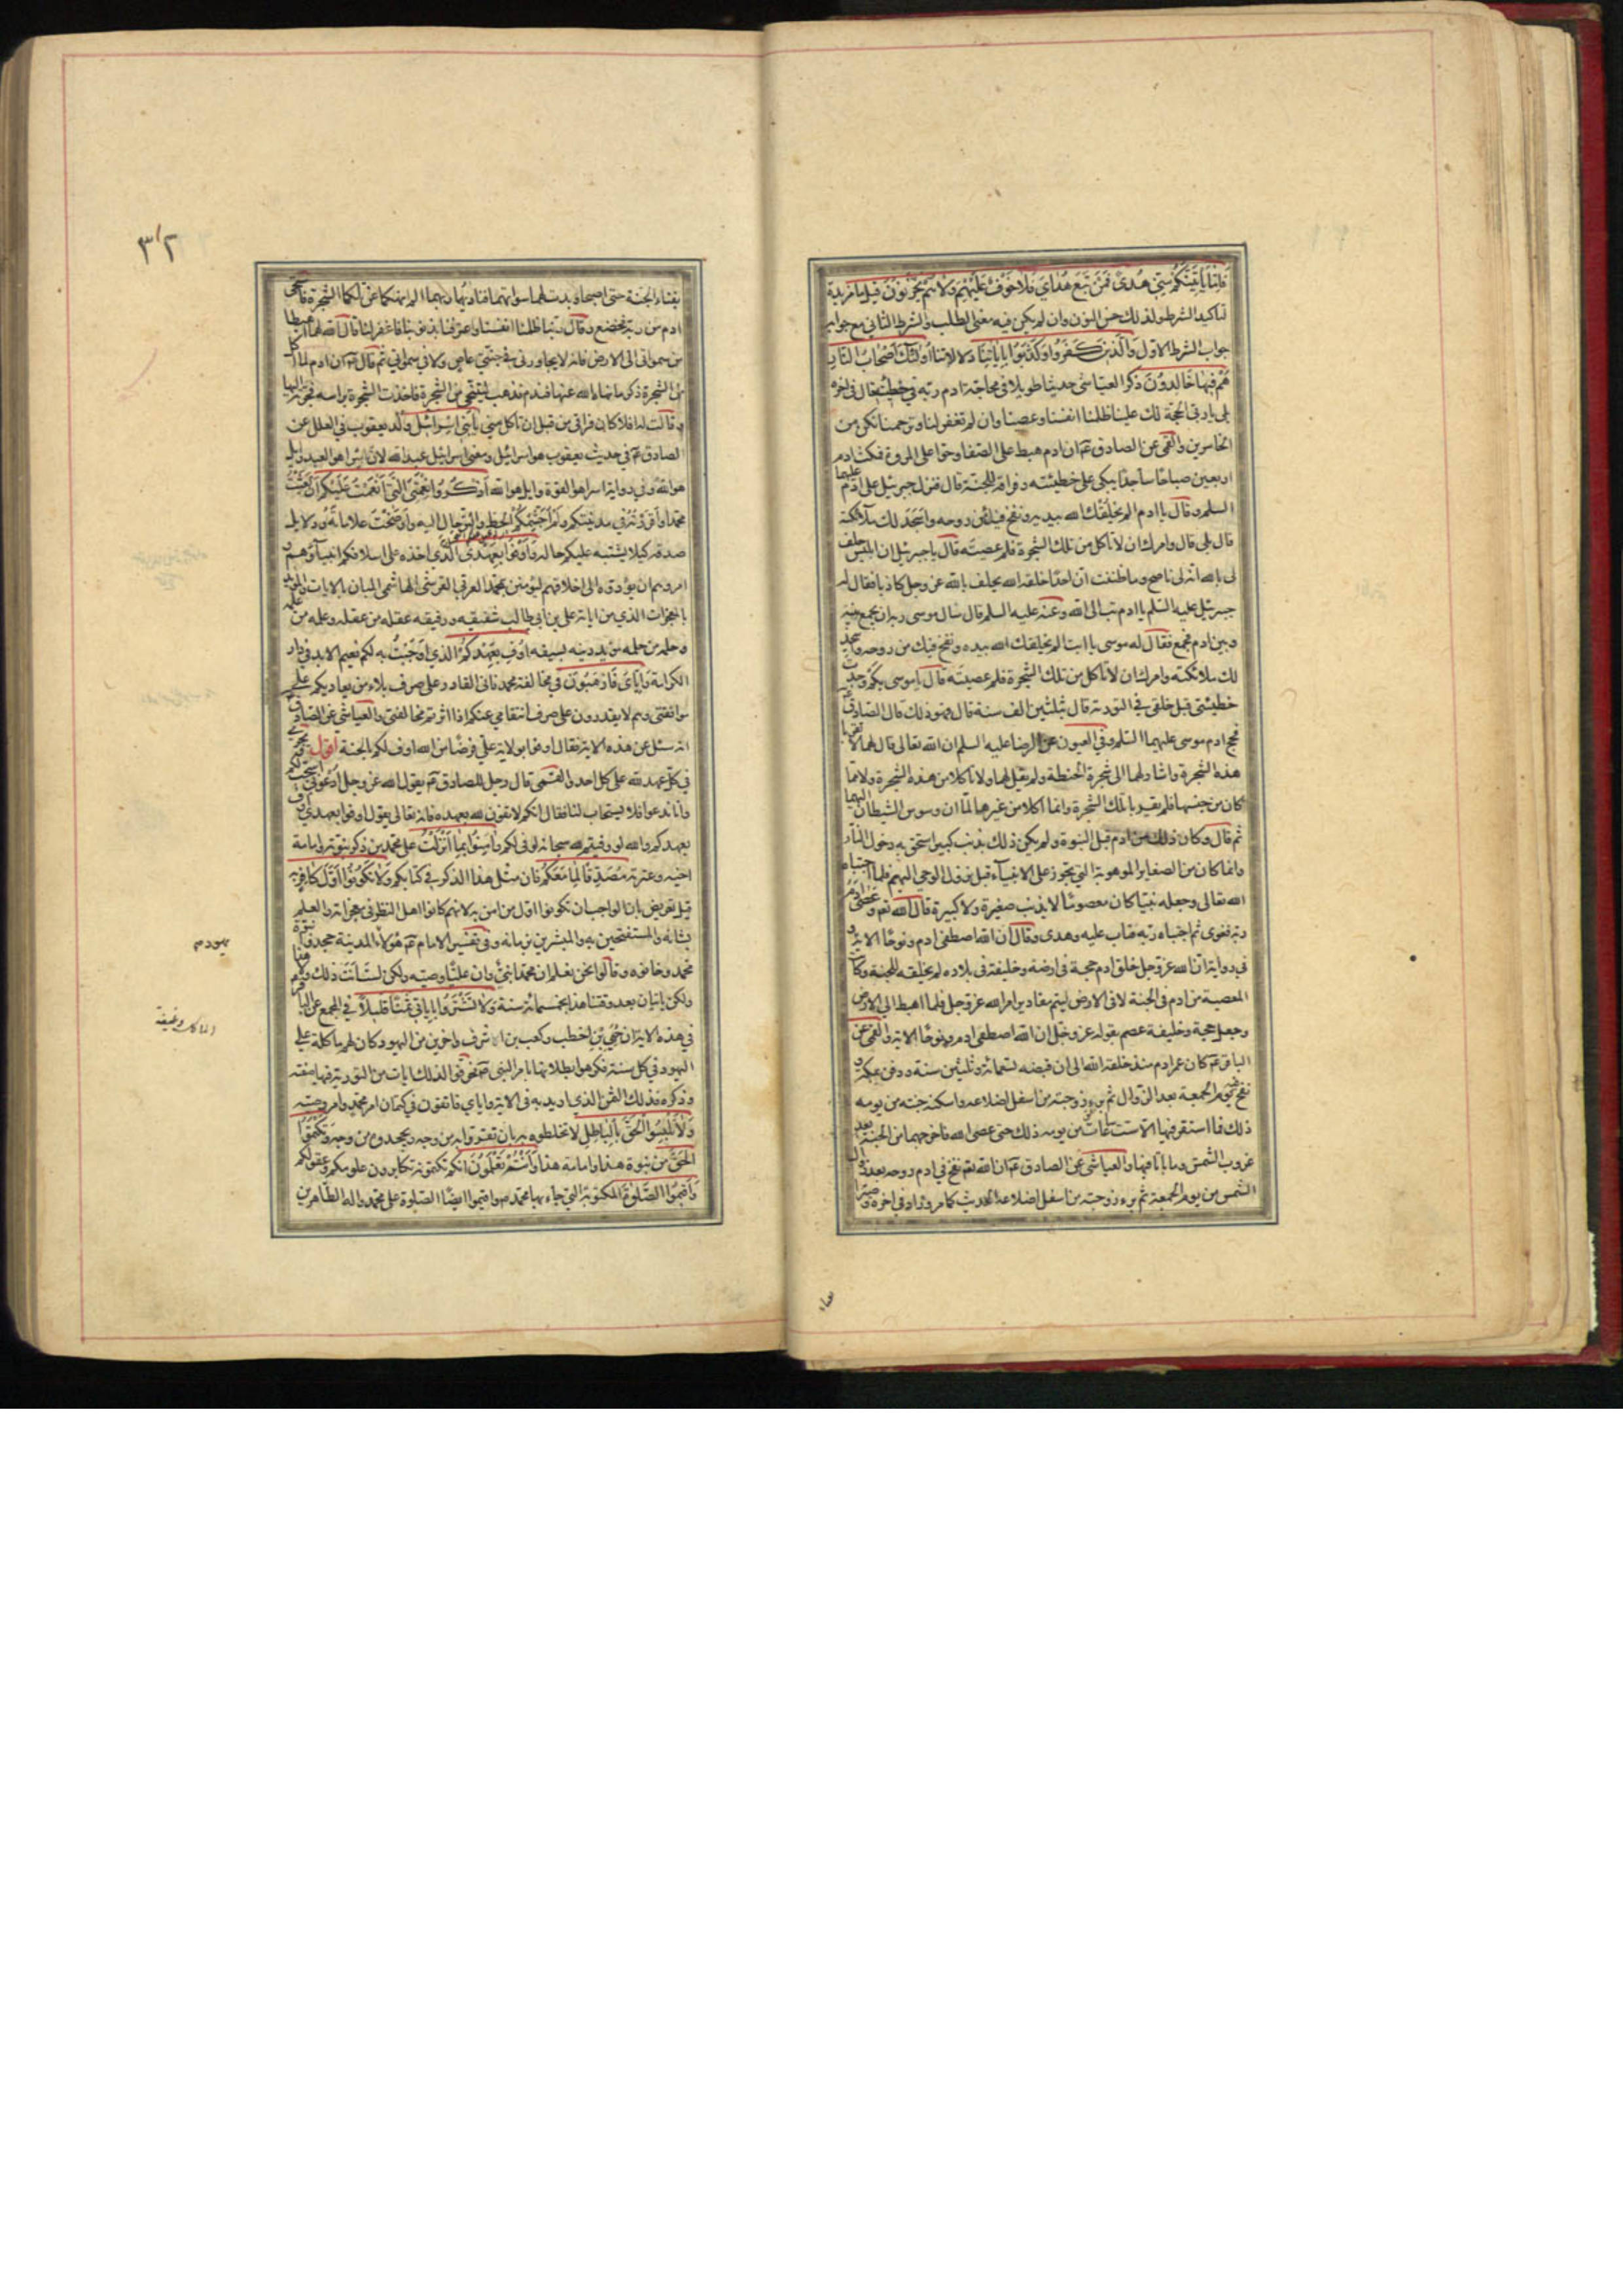 فاما يأتينكم مني هدى فمن تبع هداي فلا خوف عليهم ولا هم يحزنون قيل ما مزيدة
تأكيد الشرط ولذلك حسن النون وان لم يكن فيه معنى الطلب والشرط الثاني مع جوابه
جواب الشرط الاول والذين كفروا وكذبوا باياتنا دلالاتنا اولئك اصحاب النار
هم فيها خالدون ذكر العياشي حديثا طويلا في محاجة ادم ربه في خطيئته قال في اخره
بلى يا رب الحجة لك علينا ظلمنا انفسنا وعصينا وان لم تغفر لنا وترحمنا نكن من
الخاسرين والقمي عن الصادق ع ان ادم هبط على الصفا وحوا على المروة فمكث ادم
اربعين صباحا ساجدا يبكي على خطيئته وفراقه للجنة قال فنزل جبرئيل على ادم عليهما
السلم وقال يا ادم الم يخلقك الله بيده ونفخ فيك من روحه واسجد لك ملائكته
قال بلى قال وامرك ان لا تاكل من تلك الشجرة فلم عصيته قال يا جبرئيل ان ابليس حلف
لي بالله انه لي ناصح وما ظننت ان احدا خلقه الله يحلف بالله عز وجل كاذبا فقال له
جبرئيل عليه السلم يا ادم تب الى الله وعنه عليه السلم قال سال موسى ربه ان يجمع بينه
وبين ادم فجمع فقال له موسى يا ابت الم يخلقك الله بيده ونفخ فيك من روحه واسجد
لك ملائكته وامرك ان لا تاكل من تلك الشجرة فلم عصيته قال يا موسى بكم وجدت
خطيئتي قبل خلقي في التورية قال بثلثين الف سنة قال فهو ذلك قال الصادق ع
فحج ادم موسى عليهما السلم وفي العيون عن الرضا عليه السلم ان الله تعالى قال لهما لا تقربا
هذه الشجرة واشار لهما الى شجرة الحنطة ولم يقل لهما ولا تاكلا من هذه الشجرة ولا مما
كان من جنسها فلم يقربا تلك الشجرة وانما اكلا من غيرها لما ان وسوس الشيطان اليهما
ثم قال وكان ذلك من ادم قبل النبوة ولم يكن ذلك بذنب كبير استحق به دخول النار
وانما كان من الصغاير الموهوبة التي تجوز على الانبياء قبل نزول الوحي اليهم فلما اجتباه
الله تعالى وجعله نبيا كان معصوما لا يذنب صغيرة ولا كبيرة قال الله تع وعصى ادم
ربه فغوى ثم اجتباه ربه فتاب عليه وهدى وقال ان الله اصطفى ادم ونوحا الاية و
في رواية ان الله عز وجل خلق ادم حجة في ارضه وخليفة في بلاده لم يخلقه للجنة وكانت
المعصية من ادم في الجنة لا في الارض ليتم مقادير امر الله عز وجل فلما اهبط الى الارض
وجعل حجة وخليفة عصم بقوله عز وجل ان الله اصطفى ادم ونوحا الاية والقمي عن
الباقر ع كان عمر ادم منذ خلقه الله الى ان قبضه تسعمائة وثلثين سنة ودفن بمكة و
نفخ فيه يوم الجمعة بعد الزوال ثم برء زوجته من اسفل اضلاعه واسكنه جنته من يومه
ذلك فما استقر فيها الا ست ساعات من يومه ذلك حتى عصى الله فاخرجهما من الجنة بعد
غروب الشمس وما باتا فيها والعياشي عن الصادق ع ان الله تع نفخ في ادم روحه بعد زوال
الشمس من يوم الجمعة ثم برء زوجته من اسفل اضلاعه الحديث كما مر وزاد في اخره وصيرا
٣٢
بفناء الجنة حتى اصبحا وبدت لهما سواتهما فناداهما ربهما الم انهكما عن تلكما الشجرة فاستحى
ادم من ربه فخضع وقال ربنا ظلمنا انفسنا واعترفنا بذنوبنا فاغفر لنا قال الله لهما اهبطا
من سمواتي الى الارض فانه لا يجاورني في جنتي عاص ولا في سمواتي ثم قال ع ان ادم لما اكل
من الشجرة ذكر ما نهاه الله عنها فندم فذهب ليتنحى من الشجرة فاخذت الشجرة براسه فجرته اليها
وقالت له افلا كان فراقي من قبل ان تاكل مني يا بني اسرائيل ولد يعقوب في العلل عن
الصادق ع في حديث يعقوب هو اسرائيل ومعنى اسرائيل عبد الله لان اسرا هو العبد وايل
هو الله وفي رواية اسرا هو القوة وايل هو الله اذكروا نعمتي التي انعمت عليكم ان بعثت
محمدا واقررته في مدينتكم ولم اجشمكم الحط والترحال اليه واوضحت علاماته ودلايل
صدقه كيلا يشتبه عليكم حاله واوفوا بعهدي الذي اخذه على اسلافكم انبياؤهم و
امروهم ان يؤدوه الى اخلافهم ليؤمنن بمحمد العربي القرشي الهاشمي المبان بالايات والمؤيد
بالمعجزات الذي من اياته علي بن ابي طالب شقيقه ورفيقه عقله من عقله وعلمه من علمه
وحلمه من حلمه مؤيد دينه بسيفه اوف بعهدكم الذي اوجبت به لكم نعيم الابد في دار
الكرامة واياي فارهبون في مخالفة محمد فاني القادر على صرف بلاء من يعاديكم على
موافقتي وهم لا يقدرون على صرف انتقامي عنكم اذا اثرتم مخالفتي والعياشي عن الصادق ع
انه سئل عن هذه الاية فقال اوفوا بولاية علي فرضا من الله اوف لكم الجنة اقول يجري
في كل عهد لله على كل احد والقمي قال رجل للصادق ع يقول الله عز وجل ادعوني استجب لكم
وانا ندعوا فلا يستجاب لنا فقال انكم لا تفون لله بعهده فانه تعالى يقول اوفوا بعهدي اوف
بعهدكم والله لو وفيتم لله سبحانه لوفى لكم وامنوا بما انزلت على محمد من ذكر نبوته وامامة
اخيه وعترته مصدقا لما معكم فان مثل هذا الذكر في كتابكم ولا تكونوا اول كافر به
قيل تعريض بان الواجب ان تكونوا اول من امن به لانهم كانوا اهل النظر في معجزاته والعلم
بشانه والمستفتحين به والمبشرين بزمانه وفي تفسير الامام ع هؤلاء المدينة جحدوا نبوة
محمد وخانوه وقالوا نحن نعلم ان محمدا نبي وان عليا وصيه ولكن لست انت ذلك
ولكن ياتيان بعد وقتنا هذا بخمسمائة سنة ولا تشتروا باياتي ثمنا قليلا في المجمع عن الباقر
في هذه الاية ان حيي بن اخطب وكعب بن اشرف واخرين من اليهود كان لهم ماكلة على
اليهود في كل سنة فكرهوا بطلانها بامر النبي ص فحرفوا لذلك ايات من التورية فيها صفته
وذكره فذلك الثمن الذي اريد به في الاية واياي فاتقون في كتمان امر محمد وامر وصيه
ولا تلبسوا الحق بالباطل لا تخلطوه به بان تقروا به من وجه ويجحدوه من وجه وتكتموا
الحق من نبوة هذا وامامة هذا وانتم تعلمون انكم تكتمونه تكابرون علومكم وعقولكم
واقيموا الصلوة المكتوبة التي جاء بها محمد ص واقيموا ايضا الصلوة على محمد واله الطاهرين
يهود م